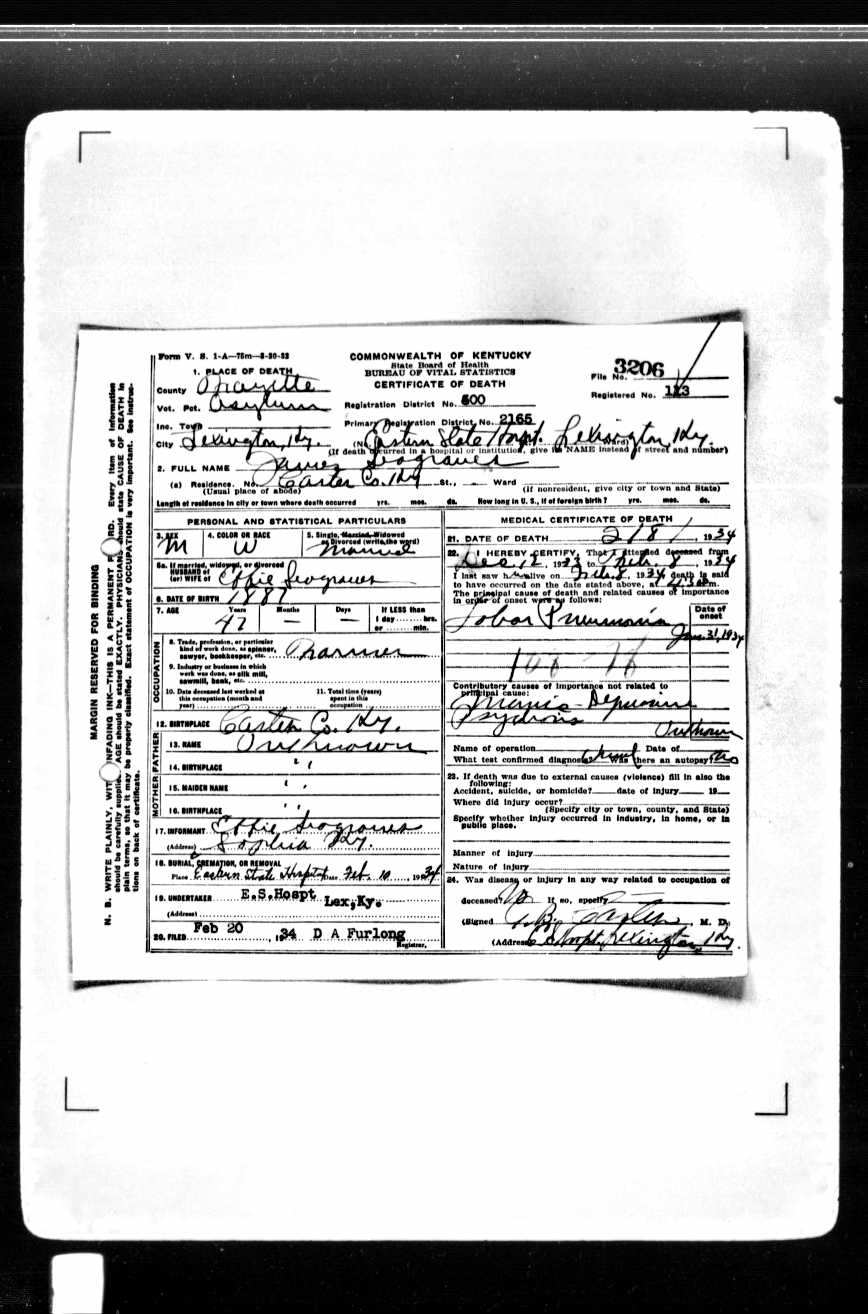 Form V. S. 1-A—75m—8-30-32
COMMONWEALTH OF KENTUCKY
State Board of Health
BUREAU OF VITAL STATISTICS
CERTIFICATE OF DEATH
File No. 3206
Registered No. 113
1. PLACE OF DEATH
County Fayette
Vot. Pct. Asylum
Registration District No. 500
Inc. Town
Primary Registration District No. 2165
City Lexington, Ky. (No. Eastern State Hospt. Lexington, Ky. Ward)
(If death occurred in a hospital or institution, give its NAME instead of street and number)
2. FULL NAME James Seograves
(a) Residence. No. Carter Co. Ky St., Ward
(Usual place of abode) (If nonresident, give city or town and State)
Length of residence in city or town where death occurred yrs. mos. ds. How long in U. S., if of foreign birth? yrs. mos. ds.
PERSONAL AND STATISTICAL PARTICULARS
3. SEX 4. COLOR OR RACE 5. Single, Married, Widowed or Divorced (write the word)
M W Married
5a. If married, widowed, or divorced
HUSBAND of
(or) WIFE of Effie Seograves
6. DATE OF BIRTH 1887
7. AGE Years Months Days If LESS than 1 day hrs. or min.
47 — —
OCCUPATION
8. Trade, profession, or particular kind of work done, as spinner, sawyer, bookkeeper, etc. Farmer
9. Industry or business in which work was done, as silk mill, sawmill, bank, etc.
10. Date deceased last worked at this occupation (month and year)
11. Total time (years) spent in this occupation
12. BIRTHPLACE Carter Co. Ky.
FATHER
13. NAME Unknown
14. BIRTHPLACE " "
MOTHER
15. MAIDEN NAME "
16. BIRTHPLACE " "
17. INFORMANT Effie Seograves
(Address) Sophia Ky.
18. BURIAL, CREMATION, OR REMOVAL
Place Eastern State Hospt Date Feb. 10, 1934
19. UNDERTAKER E.S.Hospt Lex,Ky.
(Address)
20. FILED Feb 20, 1934 D A Furlong
Registrar.
MEDICAL CERTIFICATE OF DEATH
21. DATE OF DEATH 2/8/, 1934
22. I HEREBY CERTIFY, That I attended deceased from
Dec. 12, 1933 to Feb. 8, 1934
I last saw him alive on Feb. 8, 1934 death is said
to have occurred on the date stated above, at m.
The principal cause of death and related causes of importance
in order of onset were as follows:
Date of onset
Lobar Pneumonia
Jan. 31, 1934
108
Contributory causes of importance not related to
principal cause:
Manic-Depressive
Psychosis
Unknown
Name of operation Date of
What test confirmed diagnosis? Was there an autopsy? No
23. If death was due to external causes (violence) fill in also the
following:
Accident, suicide, or homicide? date of injury 19
Where did injury occur?
(Specify city or town, county, and State)
Specify whether injury occurred in industry, in home, or in
public place.
Manner of injury
Nature of injury
24. Was disease or injury in any way related to occupation of
deceased? No If so, specify
(Signed) M. D.
(Address) E S Hospt, Lexington, Ky.
MARGIN RESERVED FOR BINDING
N. B. WRITE PLAINLY, WITH UNFADING INK—THIS IS A PERMANENT RECORD. Every item of information
should be carefully supplied. AGE should be stated EXACTLY. PHYSICIANS should state CAUSE OF DEATH in
plain terms, so that it may be properly classified. Exact statement of OCCUPATION is very important. See instruc-
tions on back of certificate.